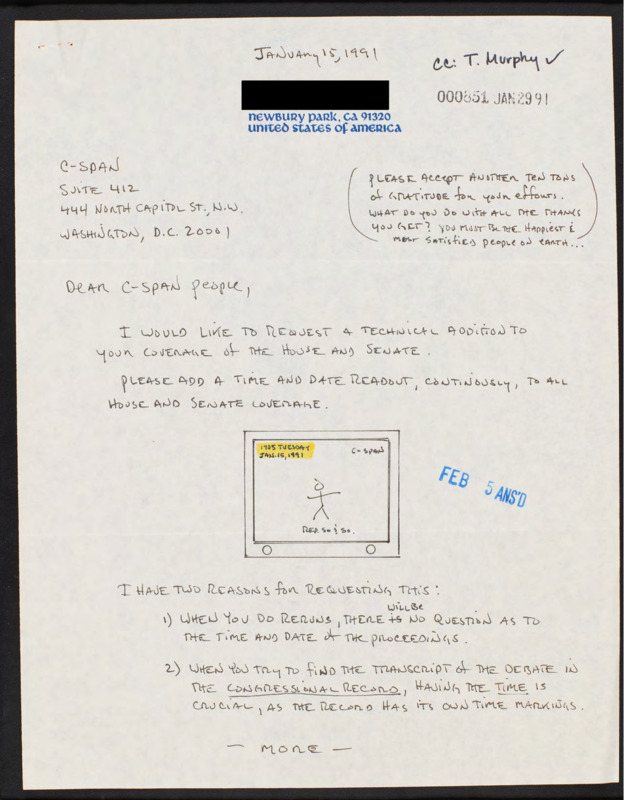 January 15, 1991
cc: T. Murphy ✓
000851 JAN 29 91
Newbury Park, CA 91320
United States of America
C-SPAN
SUITE 412
444 NORTH CAPITOL ST., N.W.
WASHINGTON, D.C. 20001
(PLEASE ACCEPT ANOTHER TEN TONS
of GRATITUDE for your efforts.
WHAT DO YOU DO WITH ALL THE THANKS
YOU GET? YOU MUST BE THE HAPPIEST &
MOST SATISFIED PEOPLE ON EARTH...)
DEAR C-SPAN people,
I WOULD LIKE TO REQUEST A TECHNICAL ADDITION TO
your COVERAGE of THE HOUSE AND SENATE.
PLEASE ADD A TIME AND DATE READOUT, CONTINOUSLY, TO ALL
HOUSE AND SENATE COVERAGE.
1725 TUESDAY
JAN. 15, 1991
C-SPAN
REP. SO & SO.
FEB 5 ANS'D
I HAVE TWO REASONS for REQUESTING THIS:
1) WHEN YOU DO RERUNS, THERE is WILL BE NO QUESTION AS TO
THE TIME AND DATE of THE PROCEEDINGS.
2) WHEN YOU TRY TO FIND THE TRANSCRIPT of THE DEBATE IN
THE CONGRESSIONAL RECORD, HAVING THE TIME IS
CRUCIAL, AS THE RECORD HAS ITS OWN TIME MARKINGS.
— MORE —